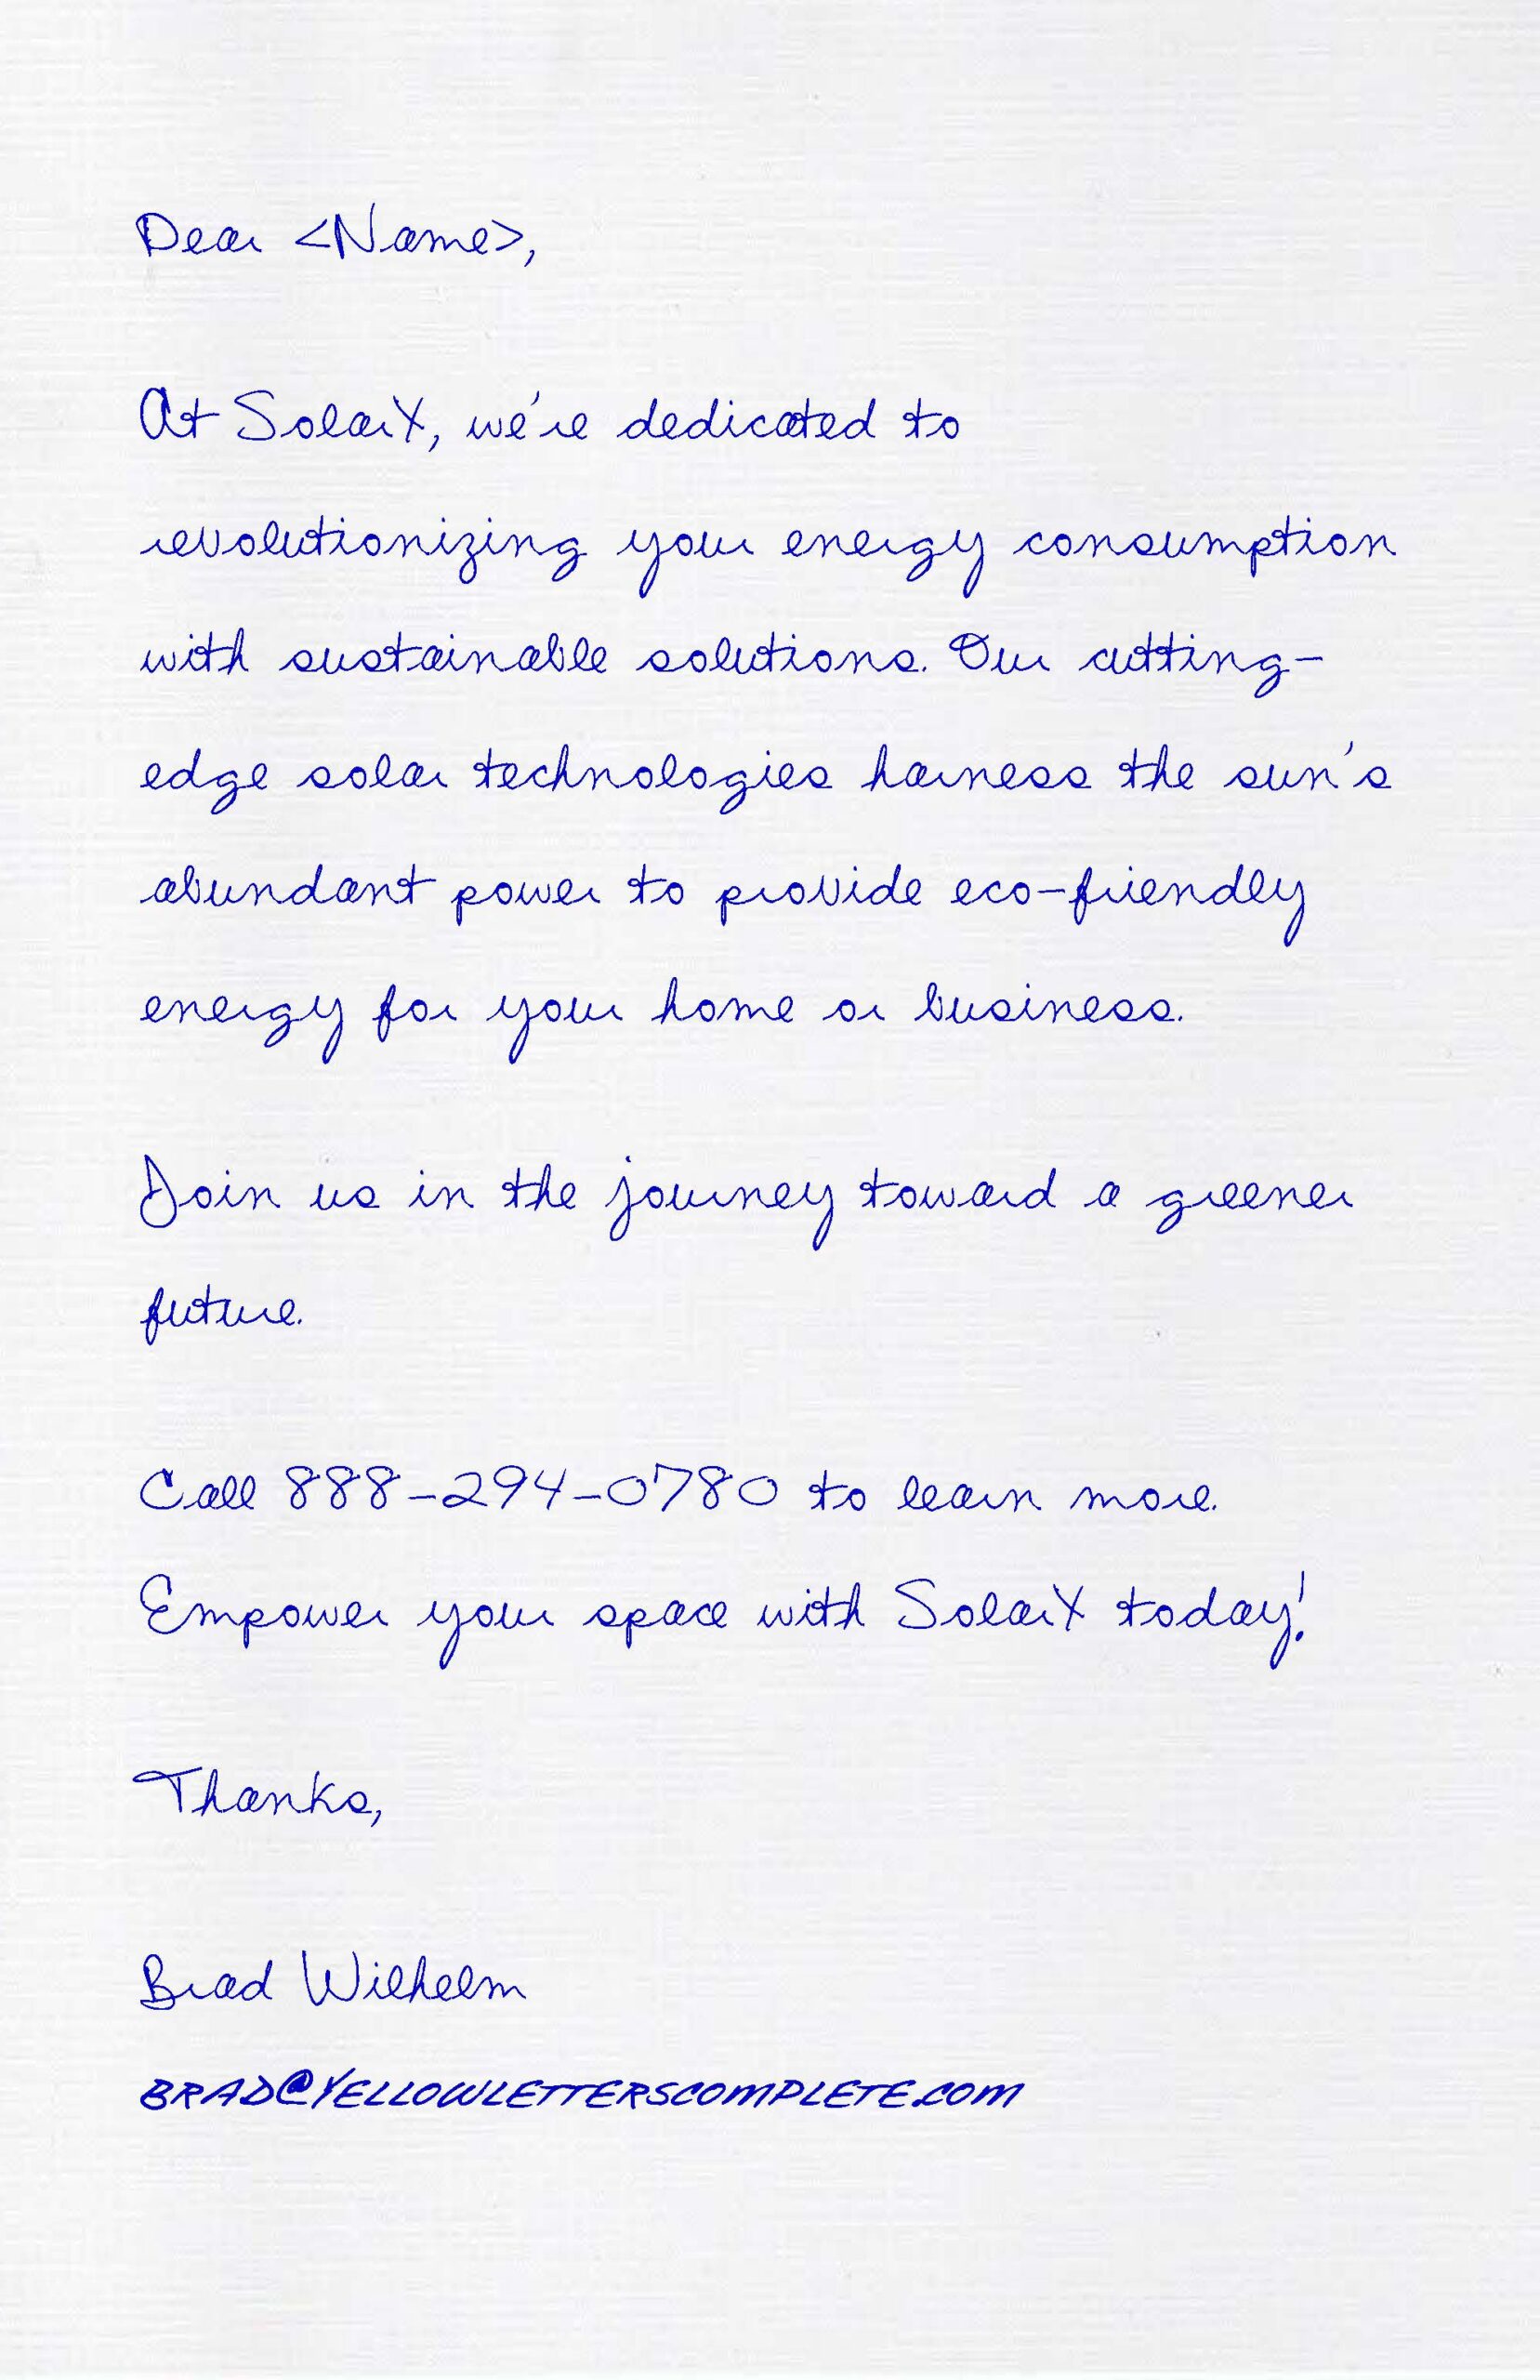 Dear <Name>,
At SolarX, we're dedicated to
revolutionizing your energy consumption
with sustainable solutions. Our cutting-
edge solar technologies harness the sun's
abundant power to provide eco-friendly
energy for your home or business.
Join us in the journey toward a greener
future.
Call 888-294-0780 to learn more.
Empower your space with SolarX today!
Thanks,
Brad Wilhelm
BRAD@YELLOWLETTERSCOMPLETE.COM